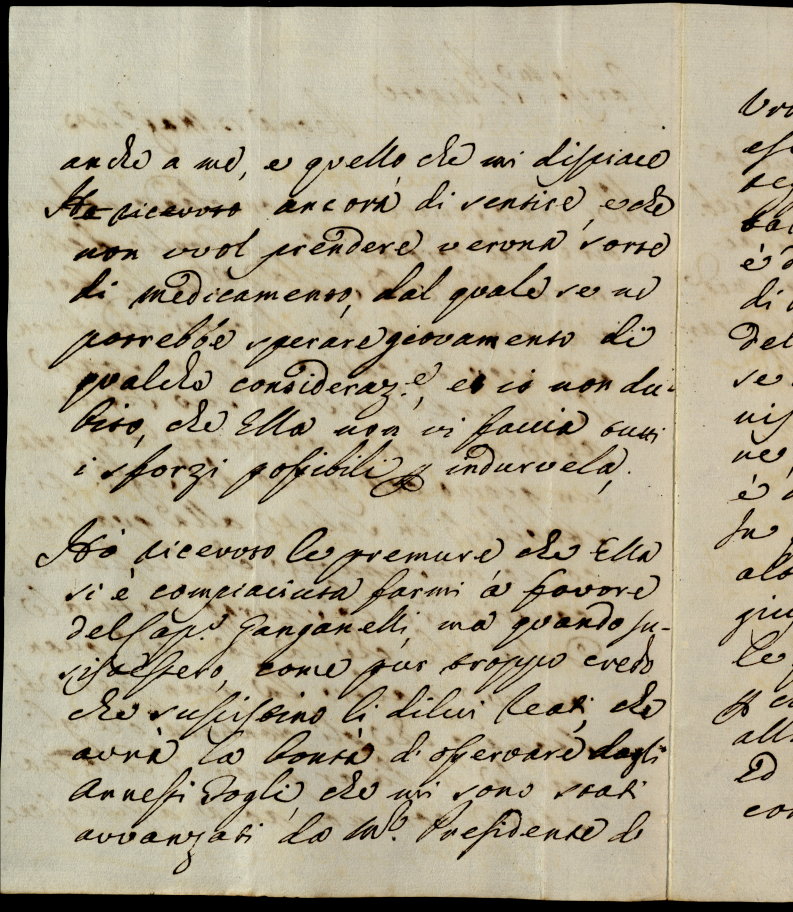 anche a me, e quello che mi dispiace
Ho ricevuto ancora di sentire, e che
non vuol prendere veruna sorte
di medicamento, dal quale se ne
potrebbe sperare giovamento di
qualche consideraz.e, ed io non du-
bito, che Ella non vi faccia tutti
i sforzi possibili p indurvela.
Hò ricevuto le premure, che Ella
si è compiaciuta farmi à favore
del Cap.o Ganganelli, ma quando su-
sistessero, come pur troppo credo
che sussistino li dilui reati, che
avrà la bontà di osservare dagli
Annessi Fogli, che mi sono stati
avvanzati da M.r Presidente di
è
di
del
se
ne,
è
su
le
p
all
Ed
con